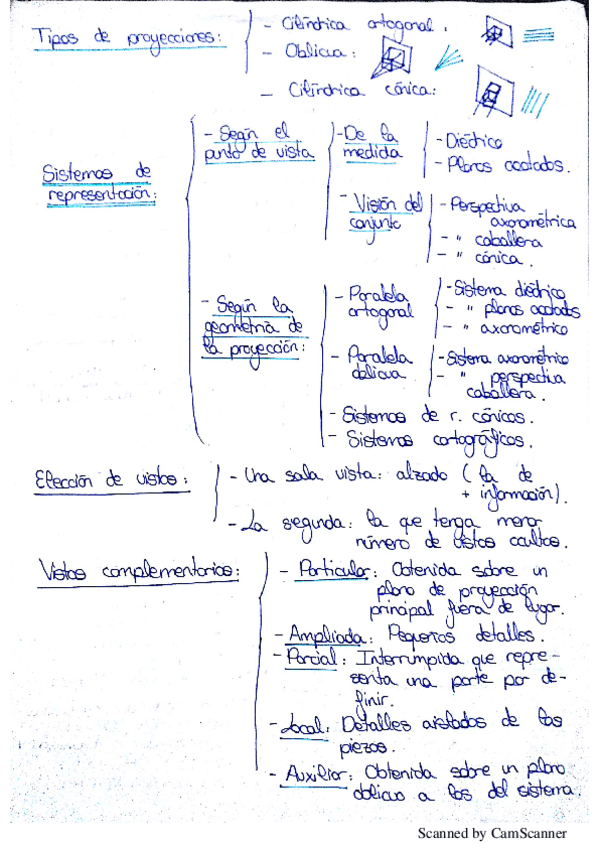 Tipos de proyecciones:
- Cilíndrica ortogonal.
- Oblicua:
- Cilíndrica cónica:
Sistemas de
representación:
- Según el
punto de vista
- De la
medida
- Diédrico
- Planos acotados.
- Visión del
conjunto
- Perspectiva
axonométrica
- " caballera
- " cónica.
- Según la
geometría de
la proyección:
- Paralela
ortogonal
- Sistema diédrico
- " planos acotados
- " axonométrico
- Paralela
oblicua
- Sistema axonométrico
- " perspectiva
caballera.
- Sistemas de r. cónicos.
- Sistemas cartográficos.
Elección de vistas:
- Una sola vista: alzado (la de
+ información).
- La segunda: la que tenga menor
número de vistas ocultas.
Vistas complementarias:
- Particular: Obtenida sobre un
plano de proyección
principal fuera de lugar.
- Ampliada: Pequeños detalles.
- Parcial: Interrumpida que repre-
senta una parte por de-
finir.
- Local: Detalles aislados de las
piezas.
- Auxiliar: Obtenida sobre un plano
oblicuo a los del sistema.
Scanned by CamScanner